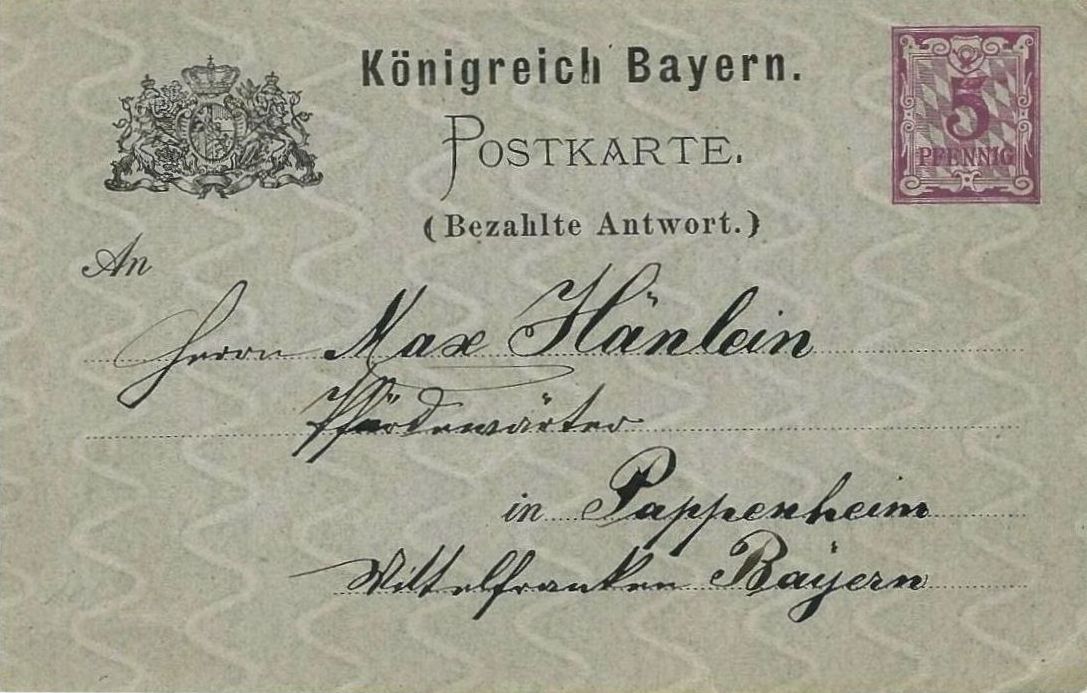 Königreich Bayern.
5
PFENNIG
POSTKARTE.
(Bezahlte Antwort.)
An
Herrn Max Hänlein
Pferdewärter
in Pappenheim
Mittelfranken Bayern